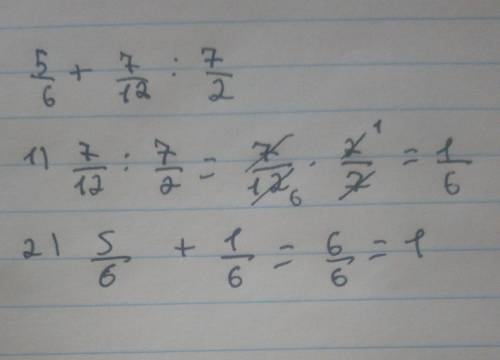 5/6 + 7/12 : 7/2
1) 7/12 : 7/2 = 7/12 6 · 2 1/7 = 1/6
2) 5/6 + 1/6 = 6/6 = 1